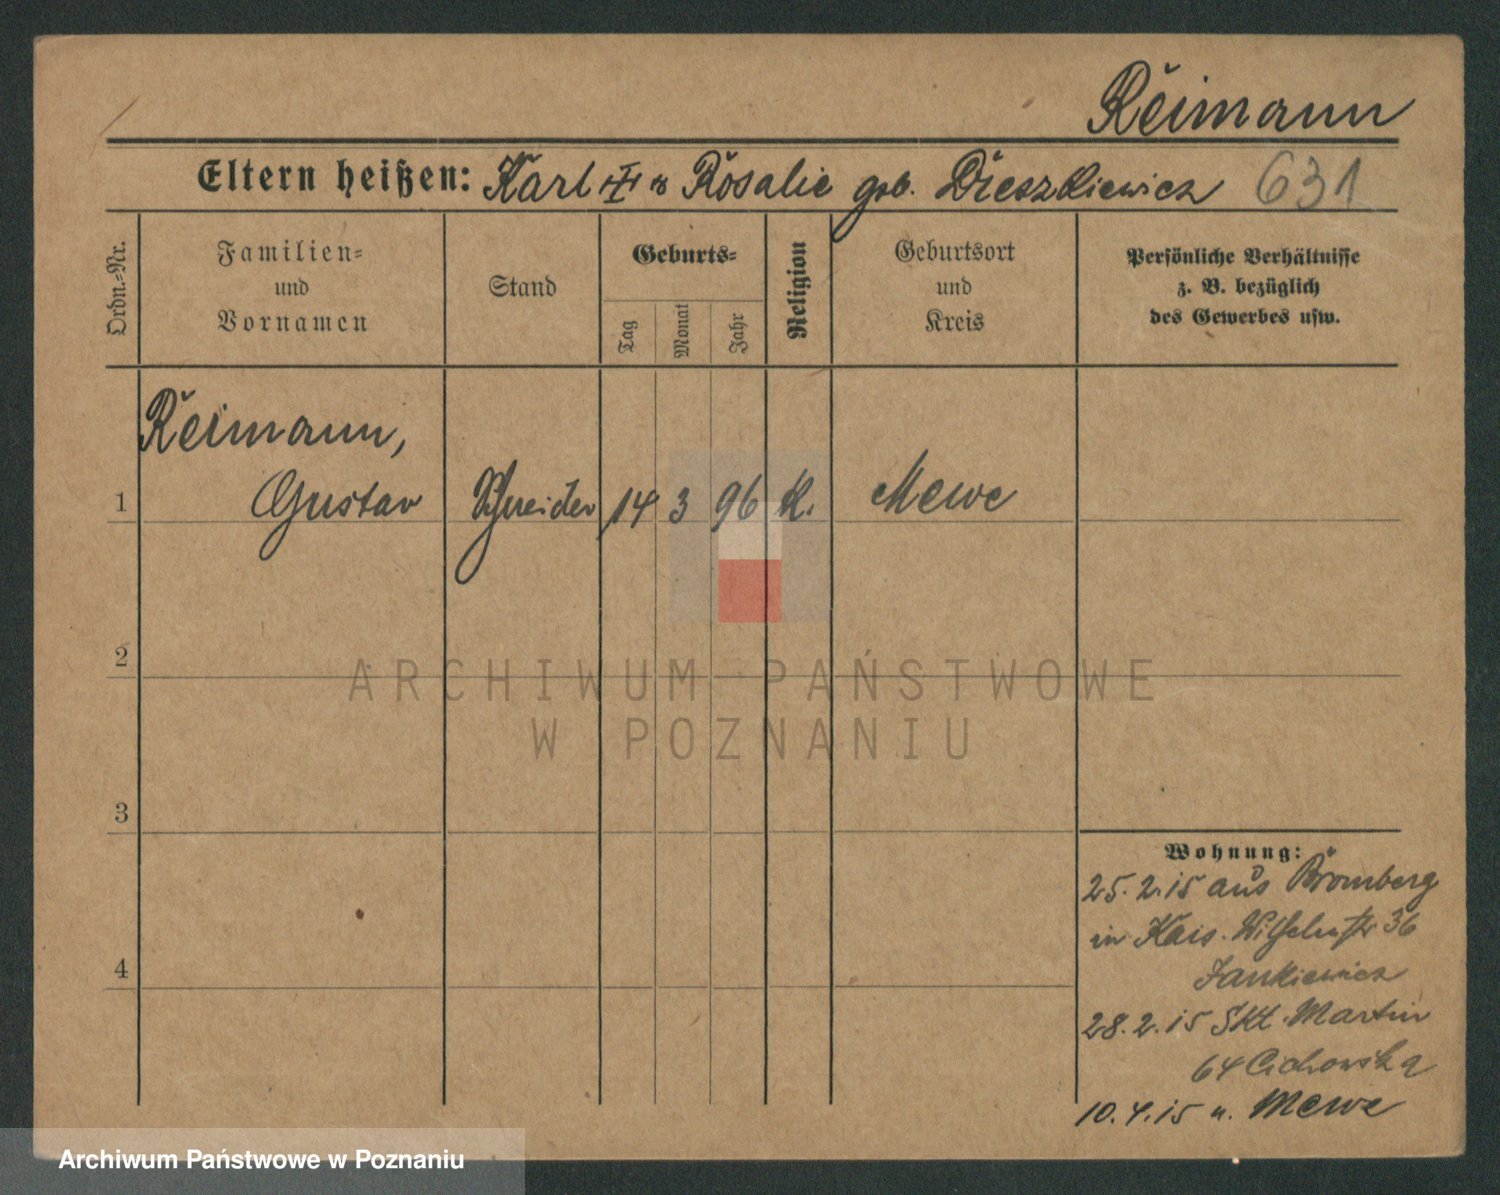 Reimann
Eltern heißen: Karl u Rosalie geb. 631
Ordn.-Nr.
Familien-
und
Vornamen
Stand
Geburts-
Tag
Monat
Jahr
Religion
Geburtsort
und
Kreis
Persönliche Verhältnisse
z. B. bezüglich
des Gewerbes usw.
Reimann,
1 Gustav Schneider 14 3 96 K. Mewe
2
3
4
ARCHIWUM PAŃSTWOWE
W POZNANIU
Wohnung:
25.2.15 aus Bromberg
in Kais. Wilhelmstr 36
Jankiewicz
28.2.15 Skt. Martin
64 Cichowska
10.4.15 n. Mewe
Archiwum Państwowe w Poznaniu